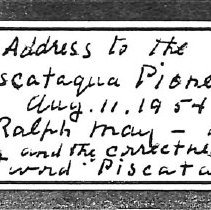 Address to the
scataqua Pione
Aug. 11. 1954
Ralph May -
and the correctne
word Piscata